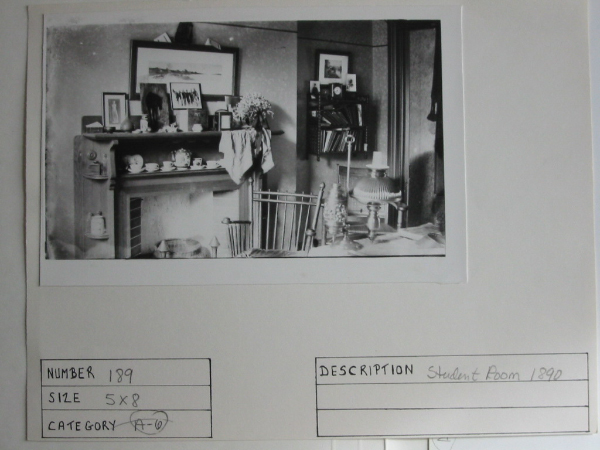 NUMBER 189
SIZE 5x8
CATEGORY A-6
DESCRIPTION Student Room 1890